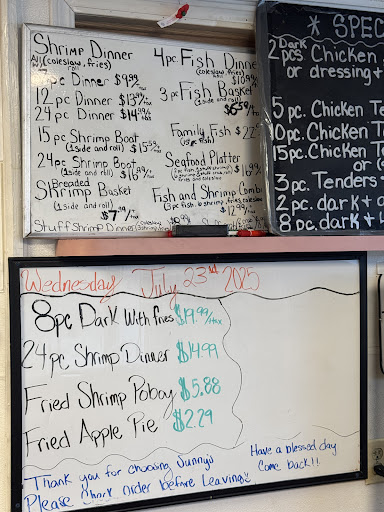 Shrimp Dinner
(coleslaw, fries)
pc Dinner $9.99
12 pc Dinner $13.99
24 pc Dinner $14.99
15 pc Shrimp Boat
(1 side and roll) $15.99
24 pc Shrimp Boat
(1 side and roll)
Breaded
Shrimp Basket
(1 side and roll)
$7.99 /tax
Stuff Shrimp Dinner
4 pc. Fish Dinne
(coleslaw, fries)
3 pc Fish Basket
(1 side and roll)
$6.59
Family Fish $22
Seafood Platter
Fish and Shrimp Combo
$12.99
* SPEC
2 Dark pcs Chicken
or dressing +
5 pc. Chicken Te
0 pc. Chicken Te
15 pc. Chicken Te
or c
3 pc. Tenders
2 pc. dark + c
8 pc. dark + l
Wednesday July 23rd 2025
8pc Dark With fries $19.99/tax
24 pc Shrimp Dinner $14.99
Fried Shrimp Poboy $5.88
Fried Apple Pie $2.29
Thank you for choosing Sunny's
Please Check order before Leaving
Have a blessed day
Come back!!